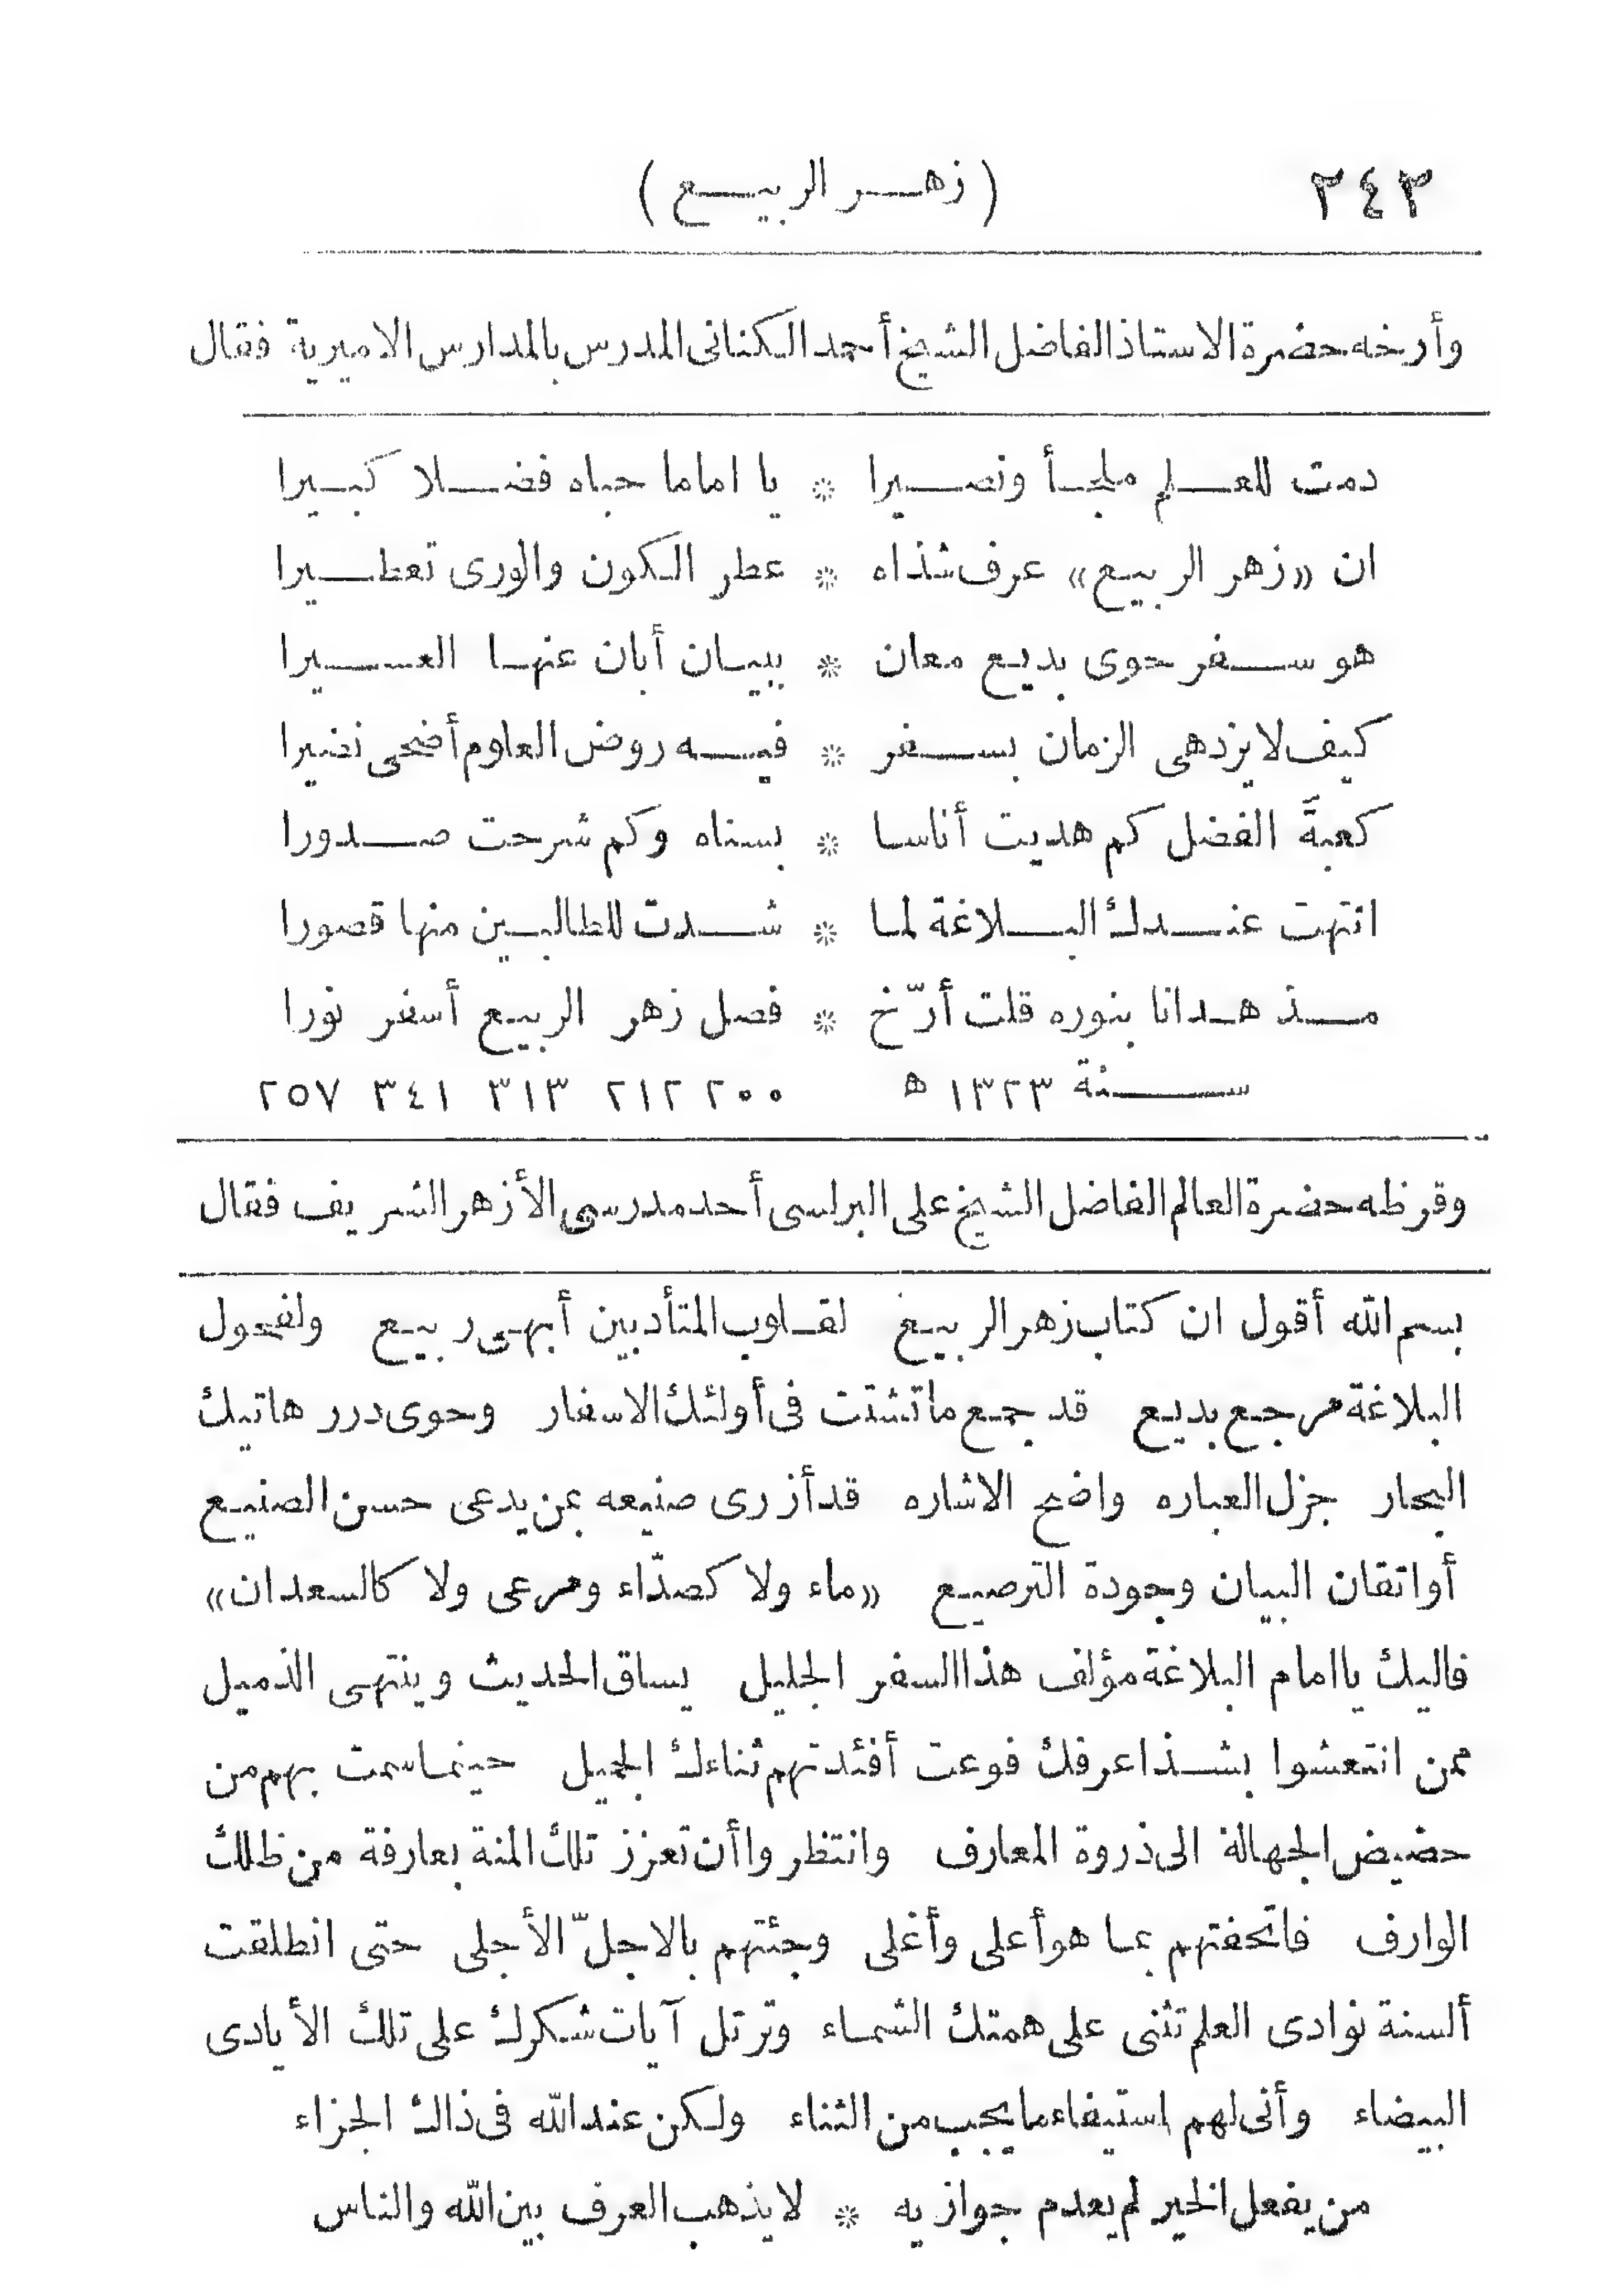 ٢٤٣ ( زهر الربيع )
وأرخه حضرة الاستاذ الفاضل الشيخ أحمد الكنانى المدرس بالمدارس الاميرية فقال
دمت للعلم ملجأ ونصيرا * يا اماما حباه فضلا كبيرا
ان «زهر الربيع» عرف شذاه * عطر الكون والورى تعطيرا
هو سفر حوى بديع معان * ببيان أبان عنها العسيرا
كيف لا يزدهى الزمان بسفر * فيه روض العلوم أضحى نضيرا
كعبةَ الفضل كم هديت أناسا * بسناه وكم شرحت صدورا
انتهت عندك البلاغة لما * شدت للطالبين منها قصورا
مذ هدانا بنوره قلت أرّخ * فصل زهر الربيع أسفر نورا
سنة ١٣٢٣ ه ٢٠٠ ٢١٢ ٣١٣ ٣٤١ ٢٥٧
وقرظه حضرة العالم الفاضل الشيخ على البرلسى أحد مدرسى الأزهر الشريف فقال
بسم الله أقول ان كتاب زهر الربيع لقلوب المتأدبين أبهى ربيع ولفحول
البلاغة مرجع بديع قد جمع ما تشتت فى أولئك الاسفار وحوى درر هاتيك
البحار جزل العباره واضح الاشاره قد أزرى صنيعه بمن يدعى حسن الصنيع
أو اتقان البيان وجودة الترصيع «ماء ولا كصدّاء ومرعى ولا كالسعدان»
فاليك يا امام البلاغة مؤلف هذا السفر الجليل يساق الحديث وينتهى الذميل
ممن انتعشوا بشذا عرفك فوعت أفئدتهم ثناءك الجميل حينما سمت بهم من
حضيض الجهالة الى ذروة المعارف وانتظروا أن تعزز تلك المنة بعارفة من ظلك
الوارف فاتحفتهم بما هو أعلى وأغلى وجئتهم بالاجلّ الأجلى حتى انطلقت
ألسنة نوادى العلم تثنى على همتك الشماء وترتل آيات شكرك على تلك الأيادى
البيضاء وأنى لهم استيفاء ما يجب من الثناء ولكن عند الله فى ذاك الجزاء
من يفعل الخير لم يعدم جوازيه * لا يذهب العرف بين الله والناس